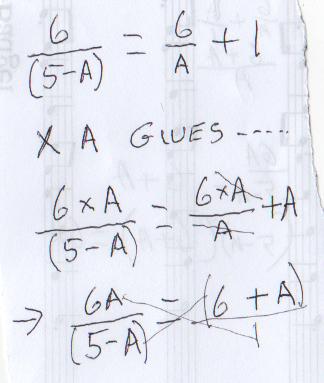 6/(5-A) = 6/A + 1
X A GIVES -----
6×A/(5-A) = 6×A/A + A
→ 6A/(5-A) = (6 + A)/1